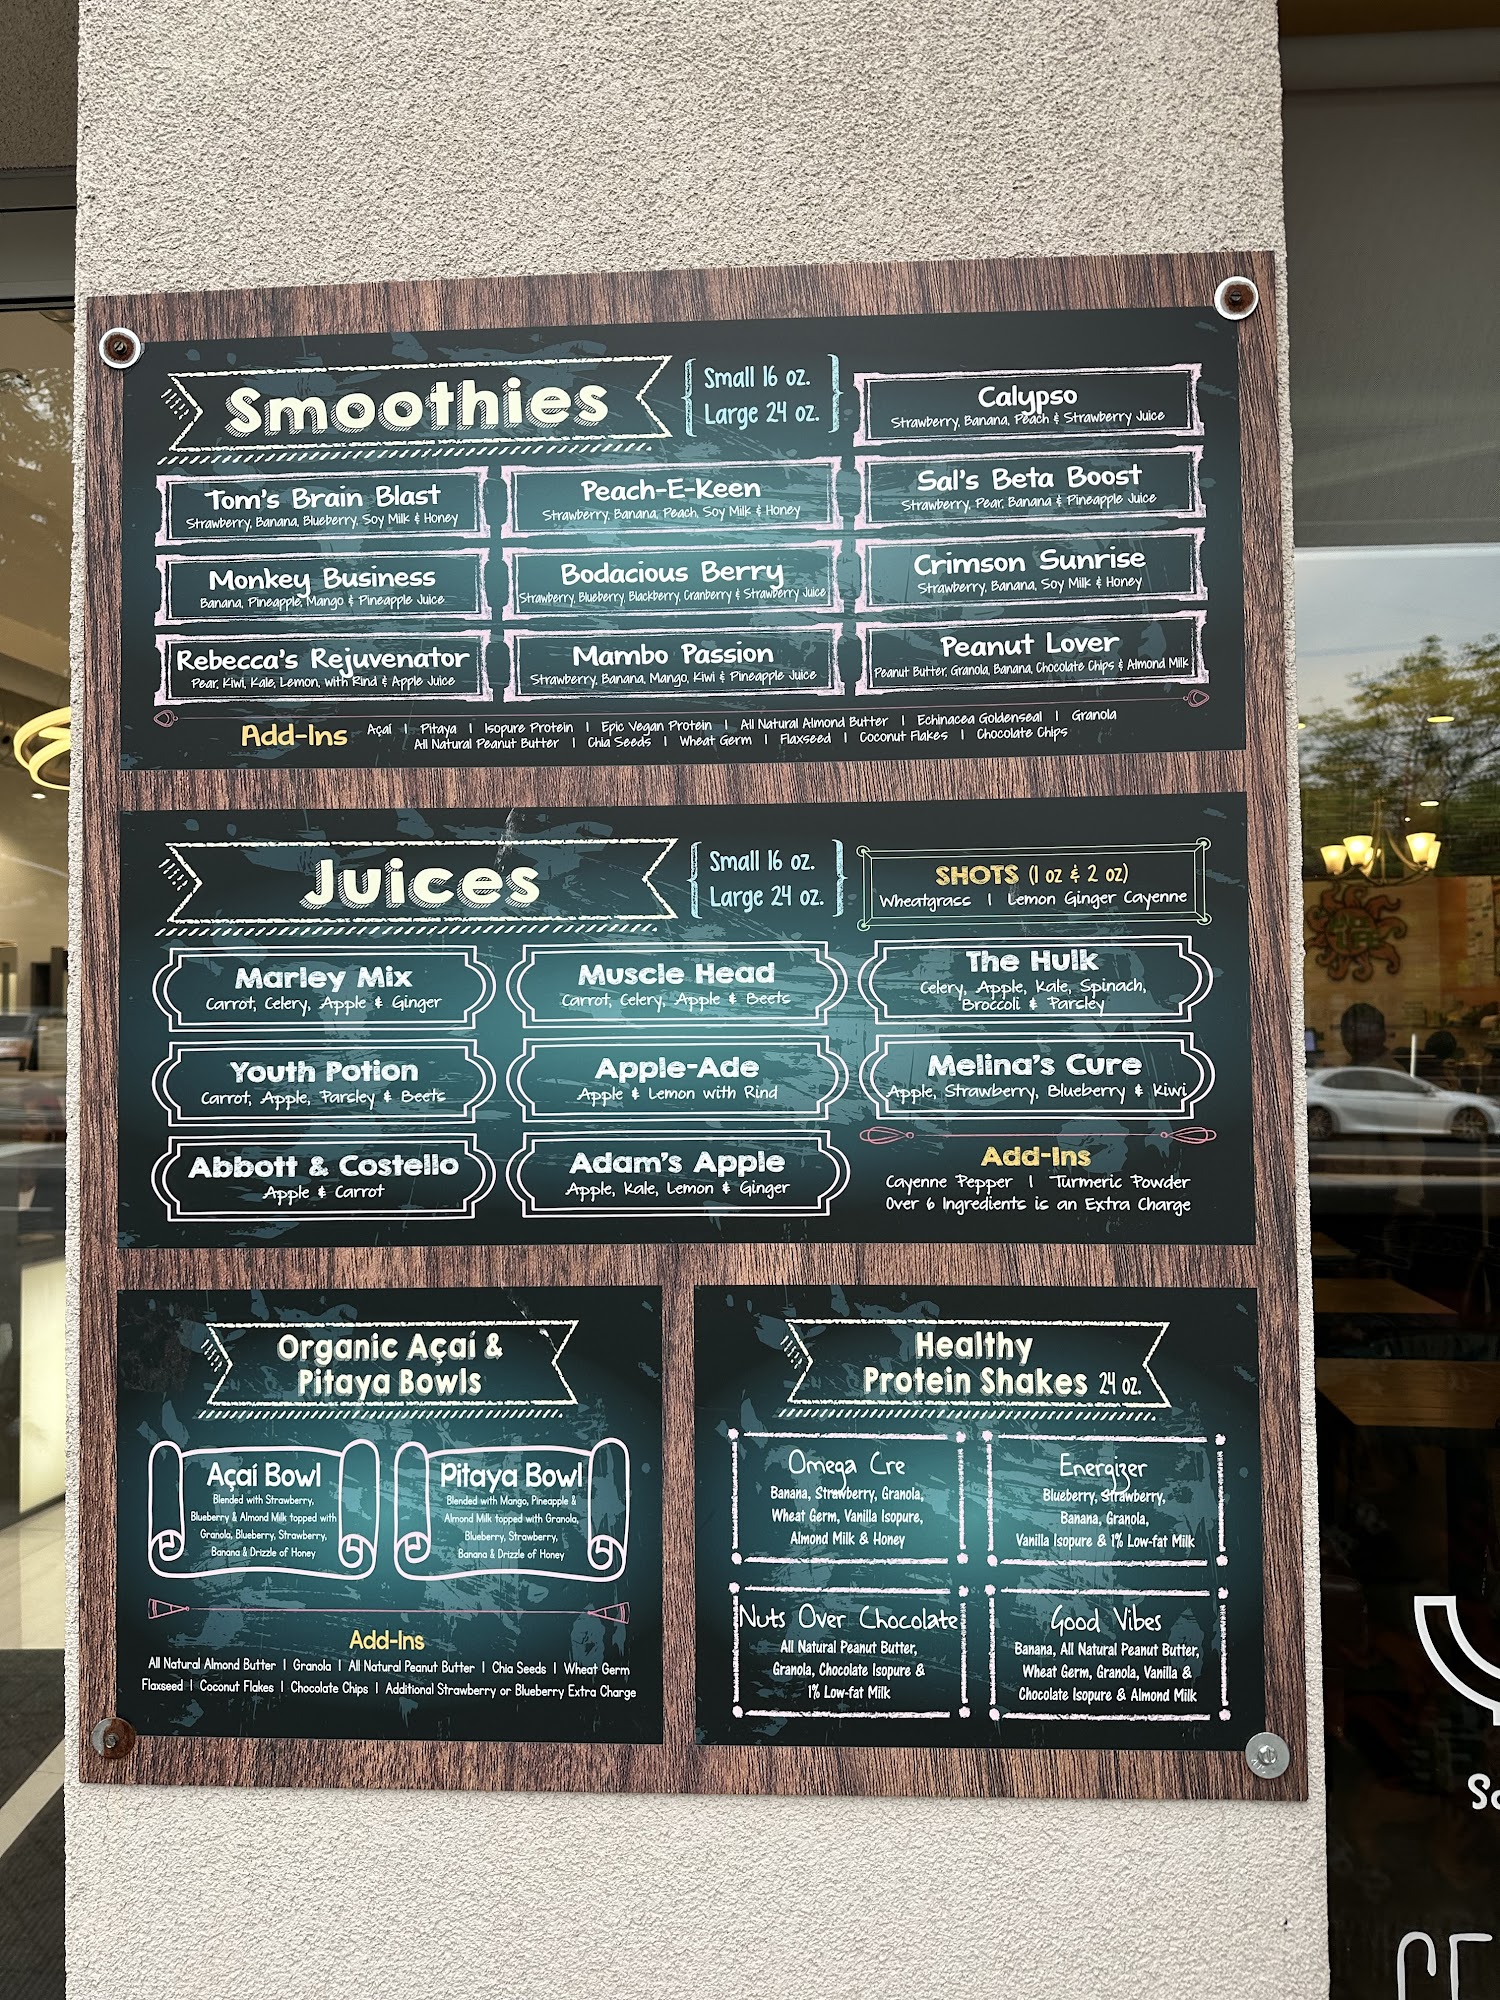 Smoothies
Small 16 oz.
Large 24 oz.
Calypso
Strawberry, Banana, Peach & Strawberry Juice
Tom's Brain Blast
Strawberry, Banana, Blueberry, Soy Milk & Honey
Peach-E-Keen
Strawberry, Banana, Peach, Soy Milk & Honey
Sal's Beta Boost
Strawberry, Pear, Banana & Pineapple Juice
Monkey Business
Banana, Pineapple, Mango & Pineapple Juice
Bodacious Berry
Strawberry, Blueberry, Blackberry, Cranberry & Strawberry Juice
Crimson Sunrise
Strawberry, Banana, Soy Milk & Honey
Rebecca's Rejuvenator
Pear, Kiwi, Kale, Lemon, with Rind & Apple Juice
Mambo Passion
Strawberry, Banana, Mango, Kiwi & Pineapple Juice
Peanut Lover
Peanut Butter, Granola, Banana, Chocolate Chips & Almond Milk
Add-Ins
Açaí | Pitaya | Isopure Protein | Epic Vegan Protein | All Natural Almond Butter | Echinacea Goldenseal | Granola
All Natural Peanut Butter | Chia Seeds | Wheat Germ | Flaxseed | Coconut Flakes | Chocolate Chips
Juices
Small 16 oz.
Large 24 oz.
SHOTS (1 oz & 2 oz)
Wheatgrass | Lemon Ginger Cayenne
Marley Mix
Carrot, Celery, Apple & Ginger
Muscle Head
Carrot, Celery, Apple & Beets
The Hulk
Celery, Apple, Kale, Spinach,
Broccoli & Parsley
Youth Potion
Carrot, Apple, Parsley & Beets
Apple-Ade
Apple & Lemon with Rind
Melina's Cure
Apple, Strawberry, Blueberry & Kiwi
Abbott & Costello
Apple & Carrot
Adam's Apple
Apple, Kale, Lemon & Ginger
Add-Ins
Cayenne Pepper | Turmeric Powder
Over 6 Ingredients is an Extra Charge
Organic Açaí &
Pitaya Bowls
Açaí Bowl
Blended with Strawberry,
Blueberry & Almond Milk topped with
Granola, Blueberry, Strawberry,
Banana & Drizzle of Honey
Pitaya Bowl
Blended with Mango, Pineapple &
Almond Milk topped with Granola,
Blueberry, Strawberry,
Banana & Drizzle of Honey
Add-Ins
All Natural Almond Butter | Granola | All Natural Peanut Butter | Chia Seeds | Wheat Germ
Flaxseed | Coconut Flakes | Chocolate Chips | Additional Strawberry or Blueberry Extra Charge
Healthy
Protein Shakes 24 oz.
Omega Cre
Banana, Strawberry, Granola,
Wheat Germ, Vanilla Isopure,
Almond Milk & Honey
Energizer
Blueberry, Strawberry,
Banana, Granola,
Vanilla Isopure & 1% Low-fat Milk
Nuts Over Chocolate
All Natural Peanut Butter,
Granola, Chocolate Isopure &
1% Low-fat Milk
Good Vibes
Banana, All Natural Peanut Butter,
Wheat Germ, Granola, Vanilla &
Chocolate Isopure & Almond Milk